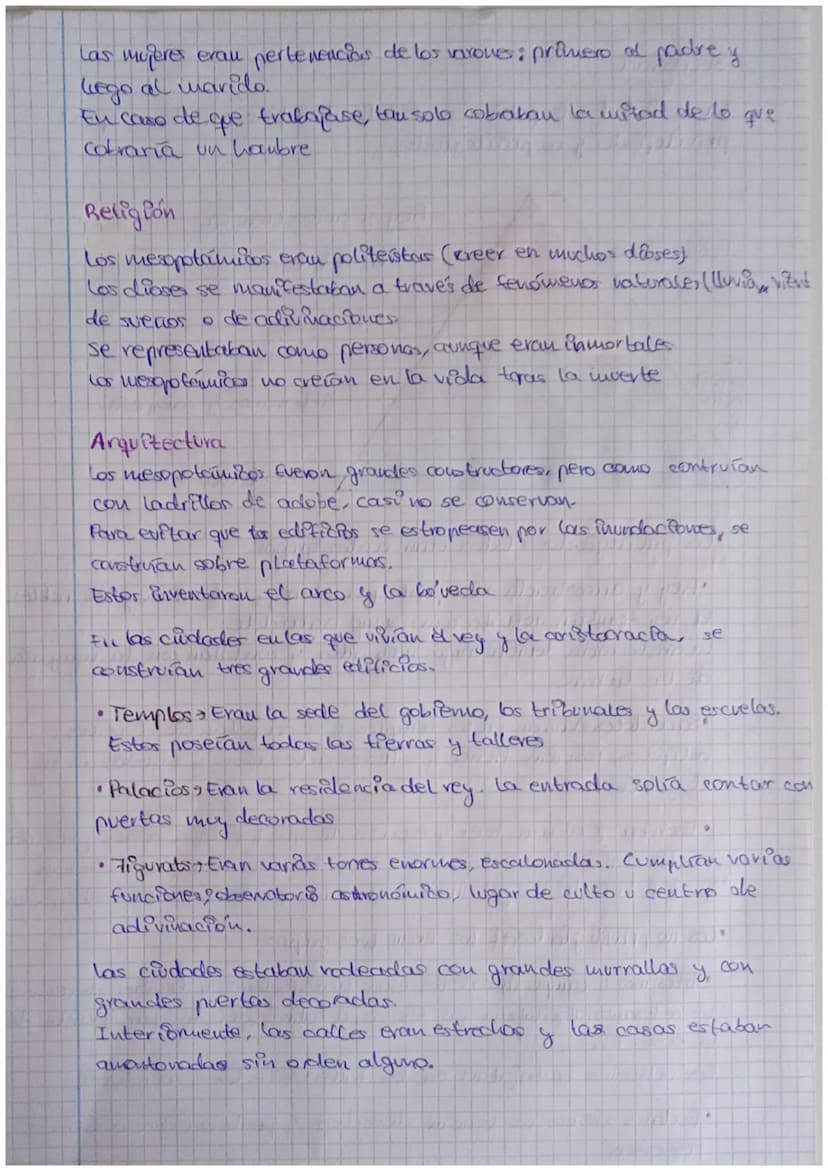 Las mujeres eran pertenencias de los varones: primero al padre y
luego al marido.
En caso de que trabajase, tan solo cobraban la mitad de lo que
cobraría un hombre
Religión
Los mesopotámicos eran politeístas (creer en muchos dioses)
Los dioses se manifestaban a través de fenómenos naturales (lluvia,
de sueños o de adivinaciones
Se representaban como personas, aunque eran inmortales
Los mesopotámicos no creían en la vida tras la muerte
Arquitectura
Los mesopotámicos fueron grandes constructores, pero como contruían
con ladrillos de adobe, casi no se conservan.
Para evitar que los edificios se estropeasen por las inundaciones, se
construían sobre plataformas.
Estos inventaron el arco y la bóveda
En las ciudades en las que vivían el rey y la aristocracia, se
construían tres grandes edificios.
• Templos → Eran la sede del gobierno, los tribunales y las escuelas.
Estos poseían todas las tierras y talleres
• Palacios → Eran la residencia del rey. La entrada solía contar con
puertas muy decoradas
• Zigurats → Eran varias torres enormes, escalonadas. Cumplían varias
funciones: observatorio astronómico, lugar de culto u centro de
adivinación.
Las ciudades estaban rodeadas con grandes murrallas y con
grandes puertas decoradas.
Interiormente, las calles eran estrechas y las casas estaban
amontonadas sin orden alguno.